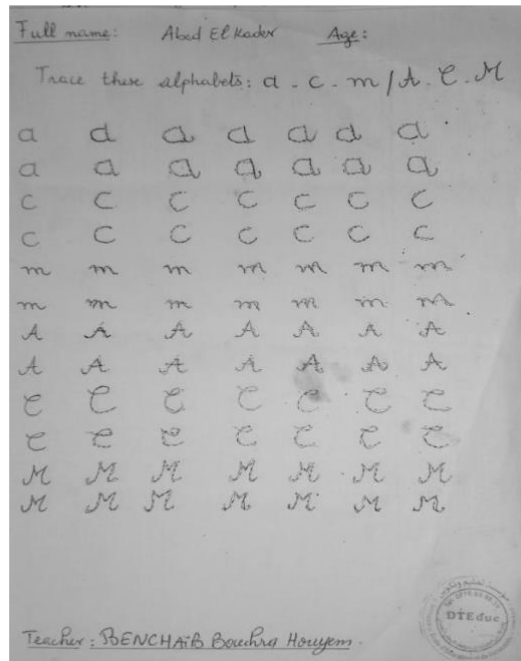 Full name: Abed El Kader Age:
Trace these alphabets: a - c - m / A - C - M
a a a a a a a
a a a a a a a
c c c c c c c
c c c c c c c
m m m m m m m
m m m m m m m
A A A A A A A
A A A A A A A
C C C C C C C
C C C C C C C
M M M M M M M
M M M M M M M
DTEduc
Teacher: BENCHAÏB Bouchra Houyem.